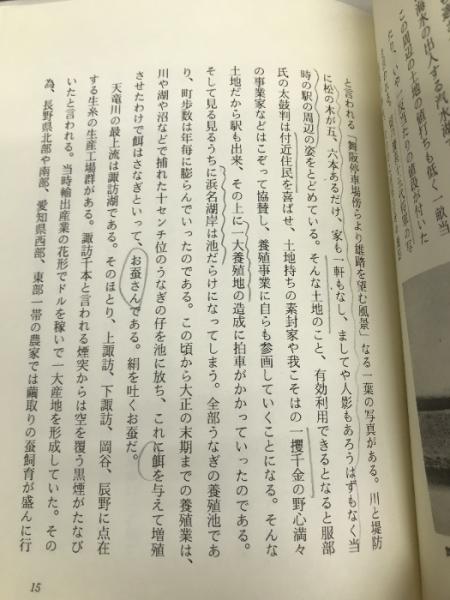 海水の出入する汽水湖
この周辺の土地の値打ちも低く一畝当
と言われる「舞阪停車場傍らより雄踏を望む風景」なる一葉の写真がある。川と堤防
に松の木が五、六本あるだけ、家も一軒もなし、ましてや人影もあろうはずもなく当
時の駅の周辺の姿をとどめている。そんな土地のこと、有効利用できるとなると服部
氏の太鼓判は付近住民を喜ばせ、土地持ちの素封家や我こそはの一攫千金の野心満々
の事業家などはこぞって協賛し、養殖事業に自らも参画していくことになる。そんな
土地だから駅も出来、その上に一大養殖地の造成に拍車がかかっていったのである。
そして見る見るうちに浜名湖岸は池だらけになってしまう。全部うなぎの養殖池であ
り、町歩数は年毎に膨らんでいったのである。この頃から大正の末期までの養殖業は、
川や湖や沼などで捕れた十センチ位のうなぎの仔を池に放ち、これに餌を与えて増殖
させたわけで餌はさなぎといって、お蚕さんである。絹を吐くお蚕だ。
天竜川の最上流は諏訪湖である。そのほとり、上諏訪、下諏訪、岡谷、辰野に点在
する生糸の生産工場群がある。諏訪千本と言われる煙突からは空を覆う黒煙がたなび
いたと言われる。当時輸出産業の花形でドルを稼いで一大産地を形成していた。その
為、長野県北部や南部、愛知県西部、東部一帯の農家では繭取りの蚕飼育が盛んに行
15